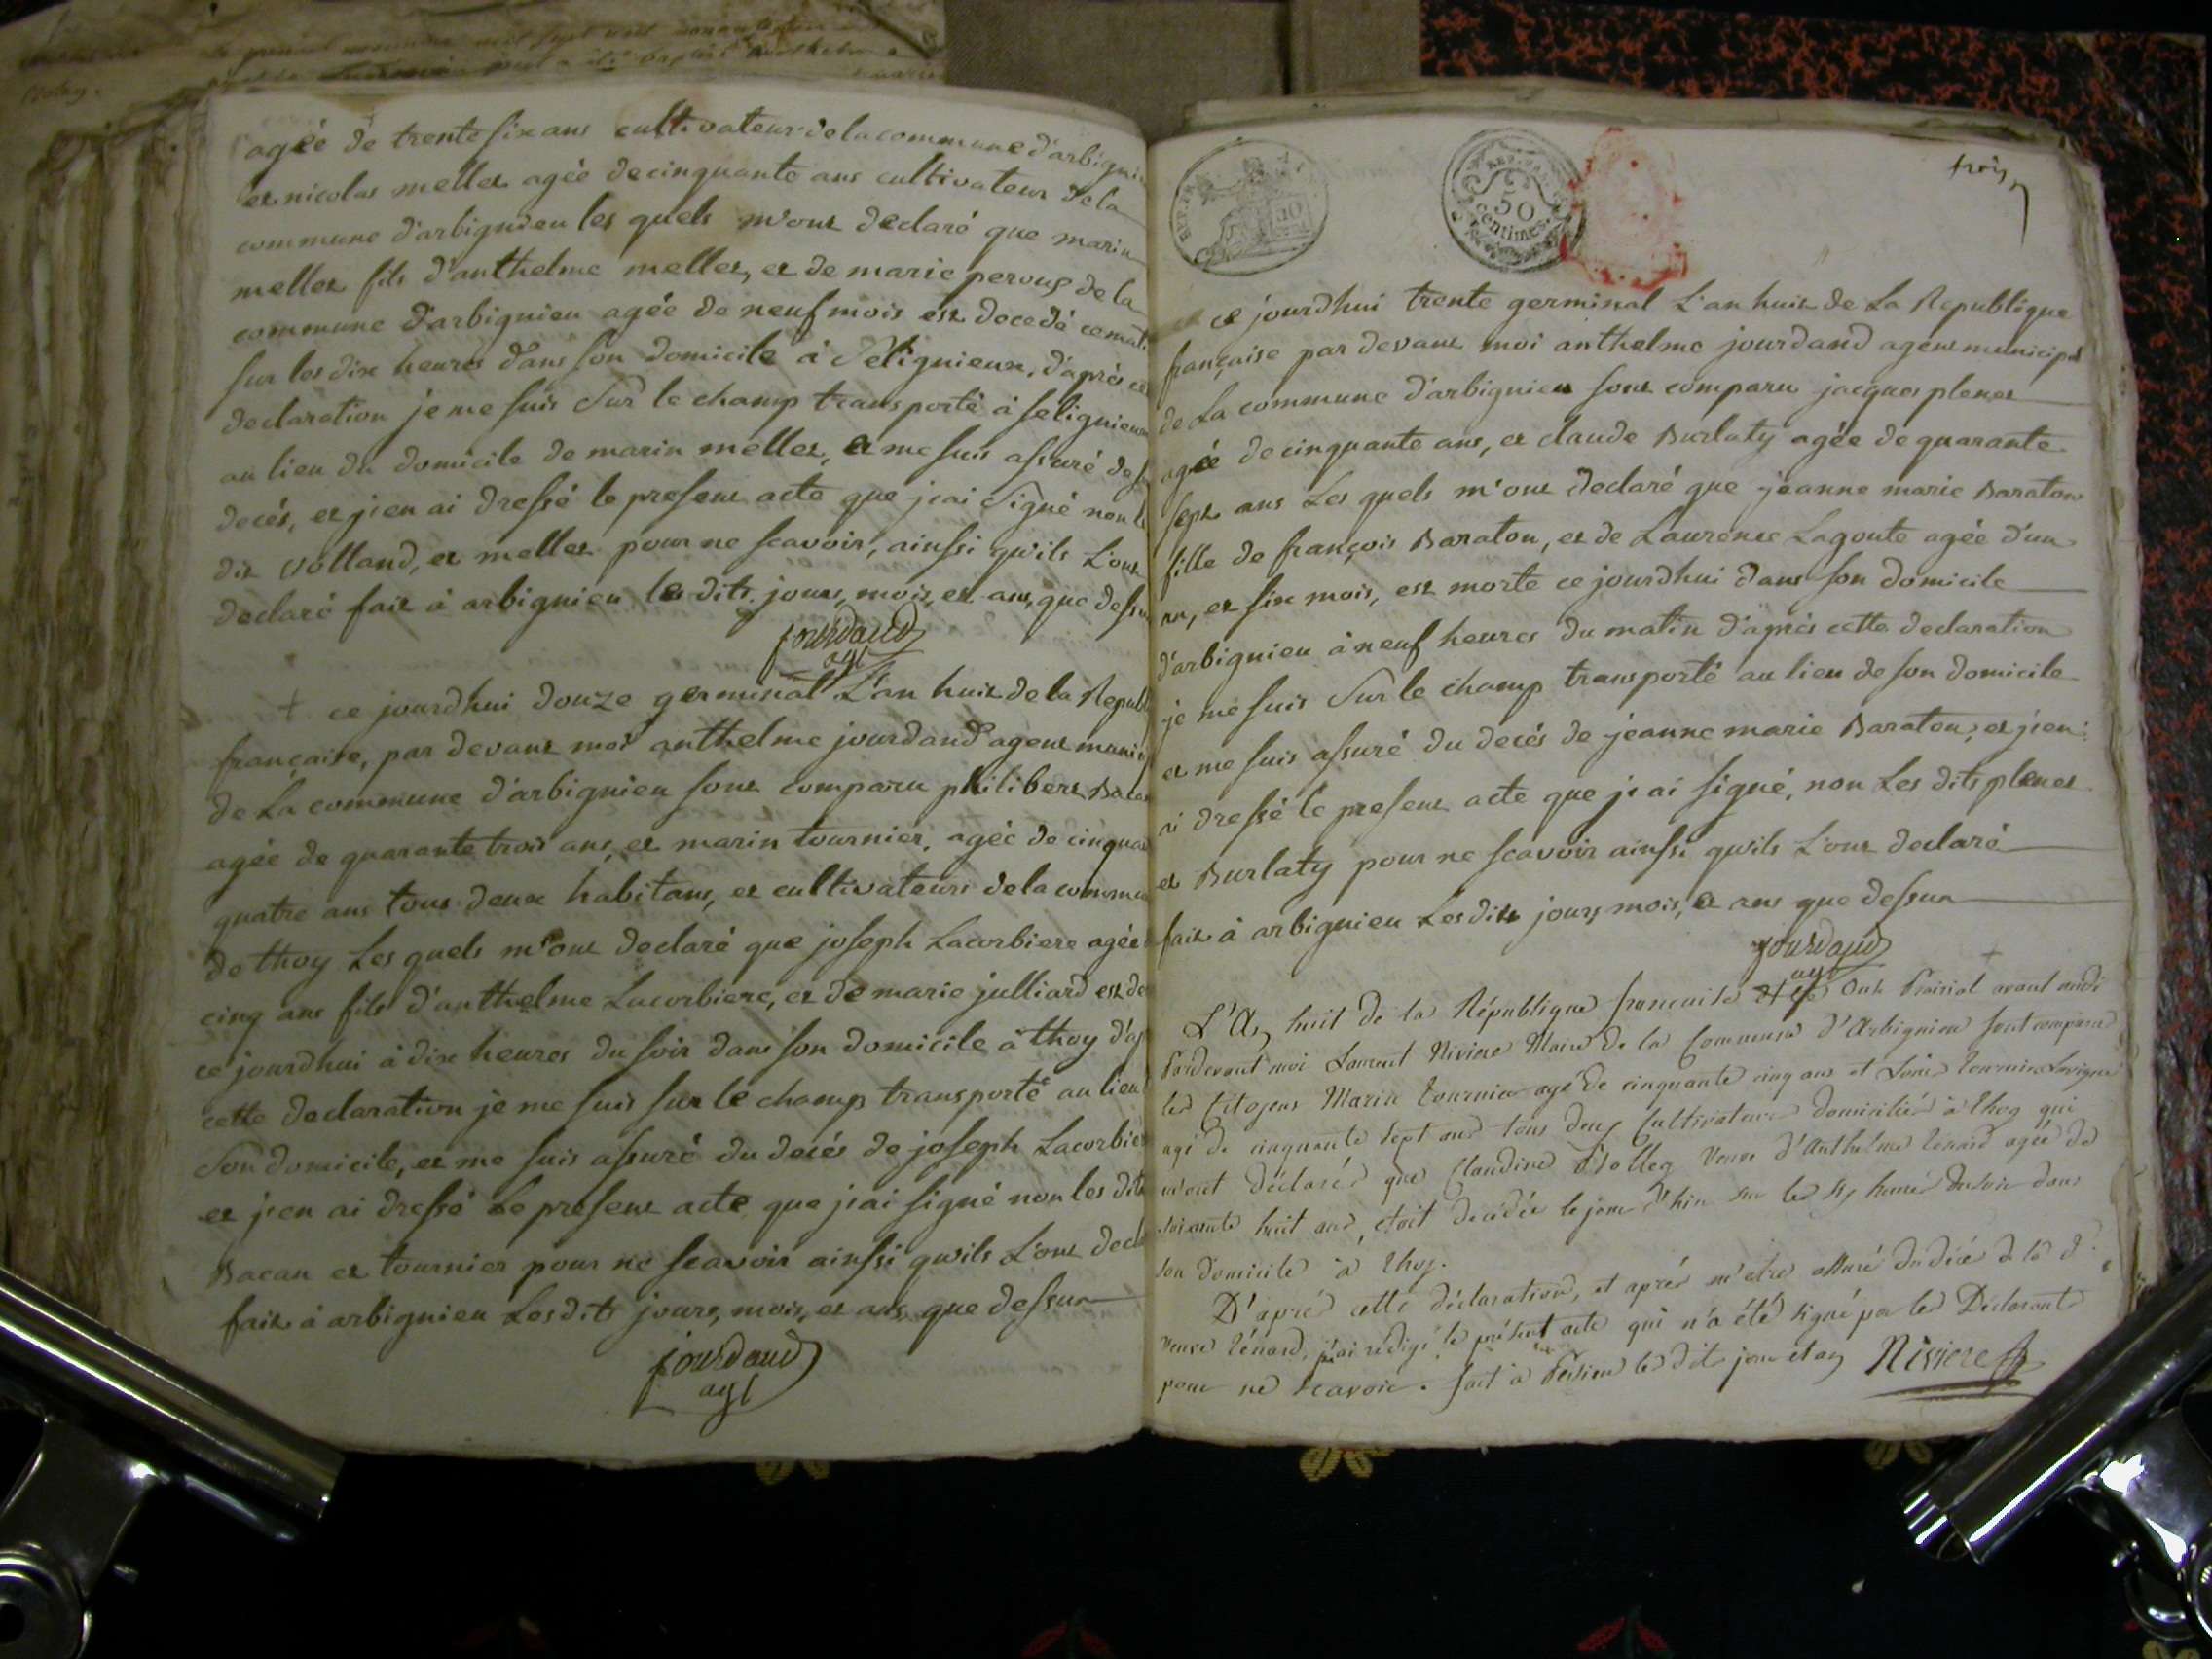 agée de trente six ans cultivateur de la commune d'arbignieu
et nicolas mellet agée de cinquante ans cultivateur de la
commune d'arbignieu les quels m'ont declaré que marin
mellet fils d'anthelme mellet, et de marie peroux de la
commune d'arbignieu agée de neuf mois est decedé ce mati
sur les dix heures dans son domicile à Selignieux, d'après ce
declaration je me suis sur le champ transporté à selignieux
au lieu du domicile de marin mellet, et me suis assuré de s
decés, et j'en ai dressé le present acte que j'ai signé non le
dit volland, et mellet pour ne scavoir, ainssi qu'ils l'ont
declaré fait à arbignieu les dits jours, mois, et ans, que dessu
jourdand
agt
+ ce jourdhui douze germinal L'an huit de la Republ
française, par devant moi anthelme jourdand agent munici
de La commune d'arbignieu sont comparu philibert Bacan
agée de quarante trois ans, et marin tournier, agée de cinqua
quatre ans tous deux habitans, et cultivateurs de la commu
de thoy Les quels m'ont declaré que joseph Lacorbiere agée
cinq ans fils d'anthelme Lacorbiere, et de marie julliard est de
ce jourdhui à dix heures du soir dans son domicile à thoy d'ap
cette declaration je me suis sur le champ transporté au lieu
Son domicile, et me suis assuré du decés de joseph Lacorbie
et j'en ai dressé Le present acte que j'ai signé non les dits
Bacan et tournier pour ne scavoir ainssi qu'ils L'ont decla
fait à arbignieu Les dits jours, mois, et ans, que dessus
jourdand
agt
REP. FRA.
50
centimes.
trois
ce jourdhui trente germinal L'an huit de La Republique
française par devant moi anthelme jourdand agent municipal
de La commune d'arbignieu sont comparu jacques plenet
agée de cinquante ans, et claude Burlaty agée de quarante
sept ans Les quels m'ont declaré que jeanne marie Baraton
fille de françois Baraton, et de Laurence Lagoute agée d'un
an, et six mois, est morte ce jourdhui dans son domicile
d'arbignieu à neuf heures du matin d'après cette declaration
je me suis sur le champ transporté au lieu de son domicile
et me suis assuré du decés de jeanne marie Baraton, et j'en
ai dressé le present acte que j'ai signé, non Les dits plenet
et Burlaty pour ne scavoir ainssi qu'ils L'ont declaré
fait à arbignieu Les dits jours, mois, et ans que dessus
jourdand
agt
L'An huit de la République francaise et le Onze Prairial avant midi
Pardevant moi Laurent Riviere Maire de la Commune d'Arbignieu sont comparus
les Citoyens Marin Tournier agé de cinquante cinq ans et
agé de cinquante sept ans tous deux Cultivateurs domiciliés à Thoy qui
m'ont déclarés que Claudine Veuve d'Anthelme Renard agée de
soixante huit ans, étoit décédée le jour d'hier sur les six heures du soir dans
son domicile à Thoy.
D'après cette déclaration, et après m'etre assuré du décé de la de
veuve Rénard, j'ai rédigé le présent acte qui n'a été signé par les Déclarants
pour ne scavoir. fait à Peisieu les dits jour et an Riviere